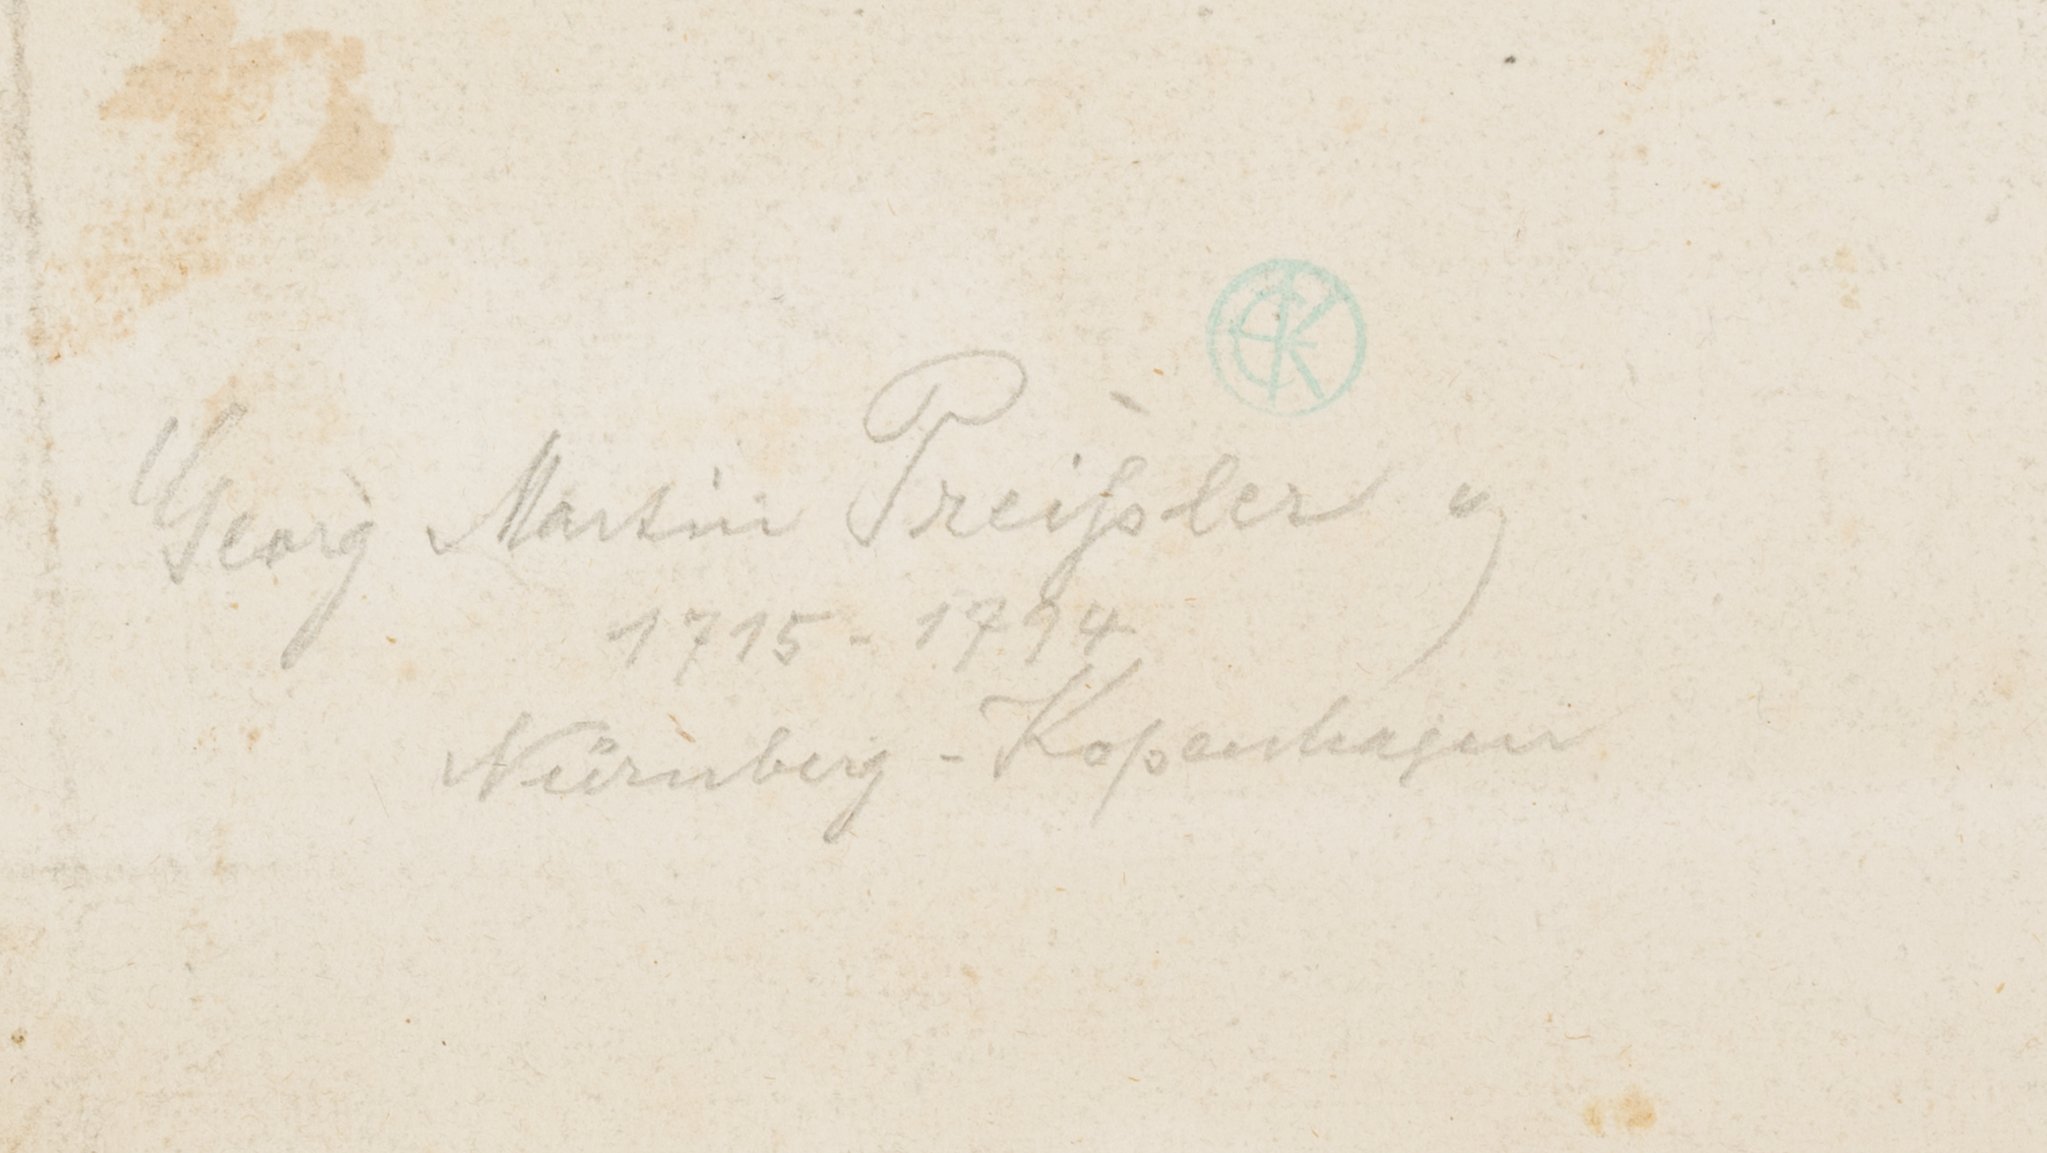 Georg Martin Preißler
1715 - 1794
Nürnberg - Kopenhagen